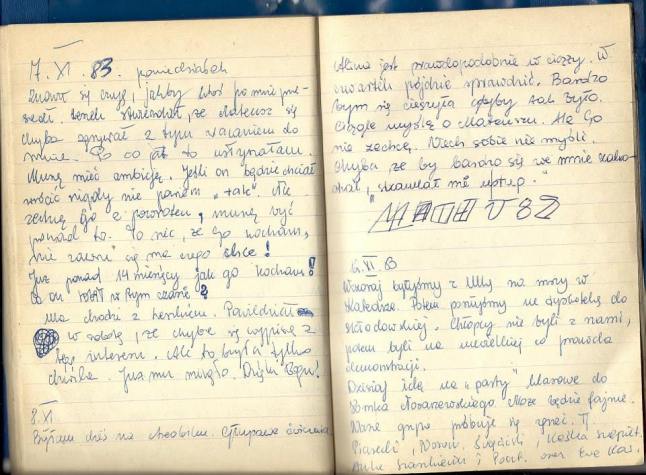 7. XI. 83. poniedziałek
Znowu się czuję, jakby ktoś po mnie prze-
szedł. Leneli stwierdził, że Mateusz się
chyba zgrywał z tym wracaniem do
mnie. Po co jak to usłyszałam.
Muszę mieć ambicję. Jeśli on będzie chciał
wrócić nigdy nie powiem „tak". Nie
zechcę go z powrotem, muszę być
ponad to. To nic, że go kocham,
nie zawsze się ma czego chce!
Już ponad 14 miesięcy jak go kocham!
Co on robił w tym czasie?
Ula chodzi z Leneli. Powiedział
w sobotę, że chyba się wypisze z
tego interesu. Ale to była tylko
chwila. Już mu minęło. Dzięki Bogu!
8. XI
Byłam dziś na
Alina jest prawdopodobnie w ciąży. W
czwartek pójdzie sprawdzić. Bardzo
bym się cieszyła gdyby tak było.
Ciągle myślę o Mateuszu. Ale Go
nie zechcę. Niech sobie nie myśli.
Chyba że by bardzo się we mnie zako-
chał,
XI. 83
Wczoraj byłyśmy z Ulą na mszy w
Katedrze. Potem poszłyśmy na dyskotekę do
Skłodowskiej. Chłopcy nie byli z nami,
potem byli na niewielkiej co prawda
demonstracji.
Dzisiaj idę na „party" klasowe do
Tomka Może będzie fajnie.
Nasza grupa próbuje się zgrać. Tj.
Piasecki, Kaśka
Anka i Piotr. oraz Ewa Kas.